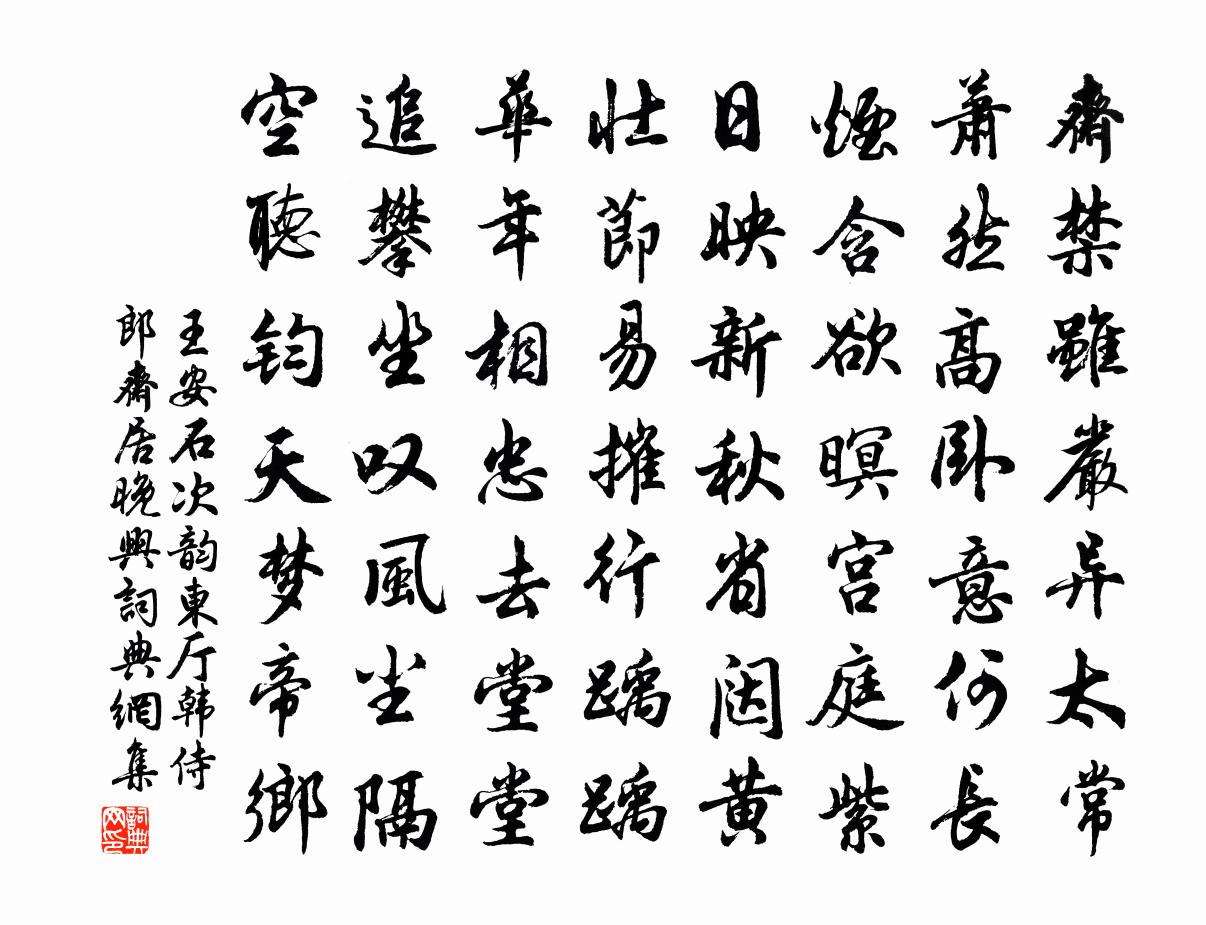 齋禁雖嚴异太常
蕭然高卧意何長
煙含欲暝宮庭紫
日映新秋省闼黄
壯節易摧行踽踽
華年相忠去堂堂
追攀坐叹風尘隔
空聽鈞天梦帝鄉
王安石次韵東厅韩侍
郎齋居晚興詞典網集
詞典
网印